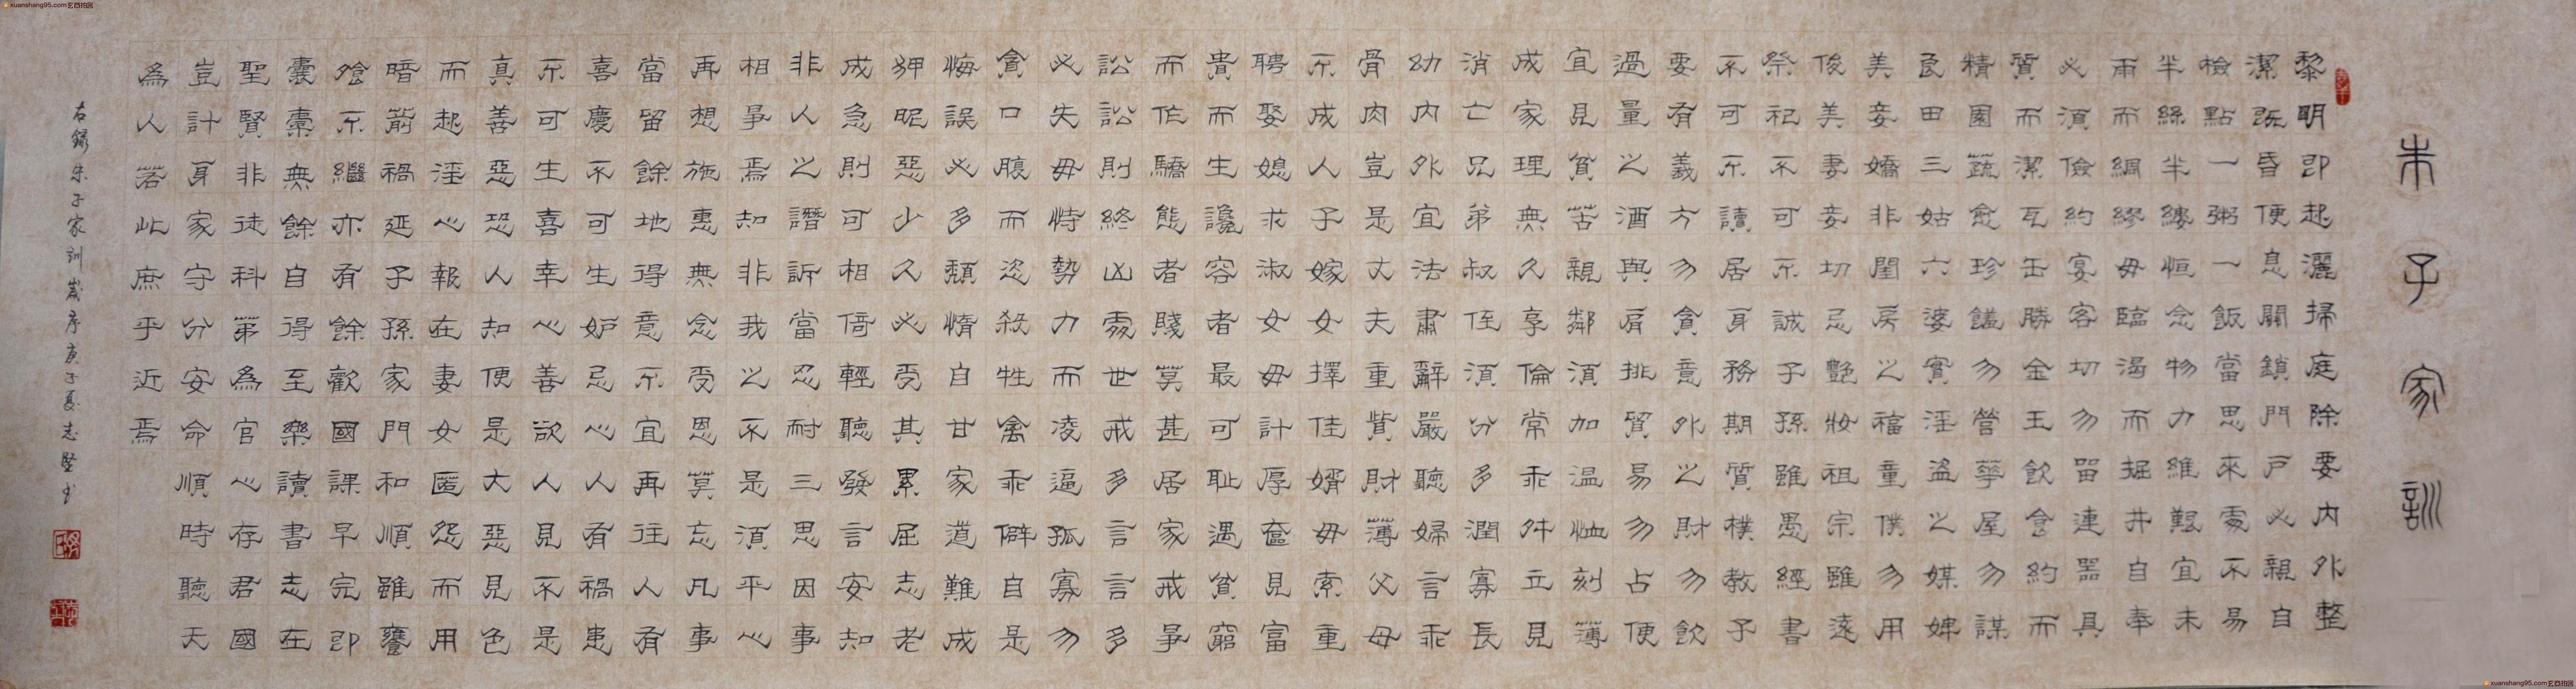 朱子家訓
黎明即起灑掃庭除要內外整
潔既昏便息關鎖門戶必親自
檢點一粥一飯當思來處不易
半絲半縷恒念物力維艱宜未
雨而綢繆毋臨渴而掘井自奉
必須儉約宴客切勿留連器具
質而潔瓦缶勝金玉飲食約而
精園蔬愈珍饈勿營華屋勿謀
良田三姑六婆實淫盜之媒婢
美妾嬌非閨房之福童僕勿用
俊美妻妾切忌艷妝祖宗雖遠
祭祀不可不誠子孫雖愚經書
不可不讀居身務期質樸教子
要有義方勿貪意外之財勿飲
過量之酒與肩挑貿易勿占便
宜見貧苦親鄰須加溫恤刻薄
成家理無久享倫常乖舛立見
消亡兄弟叔侄須分多潤寡長
幼內外宜法肅辭嚴聽婦言乖
骨肉豈是丈夫重貲財薄父母
不成人子嫁女擇佳婿毋索重
聘娶媳求淑女毋計厚奩見富
貴而生讒容者最可恥遇貧窮
而作驕態者賤莫甚居家戒爭
訟訟則終凶處世戒多言言多
必失毋恃勢力而凌逼孤寡勿
貪口腹而恣殺牲禽乖僻自是
悔誤必多頹惰自甘家道難成
狎昵惡少久必受其累屈志老
成急則可相倚輕聽發言安知
非人之譖訴當忍耐三思因事
相爭焉知非我之不是須平心
再想施惠無念受恩莫忘凡事
當留餘地得意不宜再往人有
喜慶不可生妒忌心人有禍患
不可生喜幸心善欲人見不是
真善惡恐人知便是大惡見色
而起淫心報在妻女匿怨而用
暗箭禍延子孫家門和順雖饔
飧不繼亦有餘歡國課早完即
囊橐無餘自得至樂讀書志在
聖賢非徒科第為官心存君國
豈計身家守分安命順時聽天
為人若此庶乎近焉
右錄朱子家訓歲序庚子夏志堅書
xuanshang95.com玄酉拍园
xuanshang95.com玄酉拍园